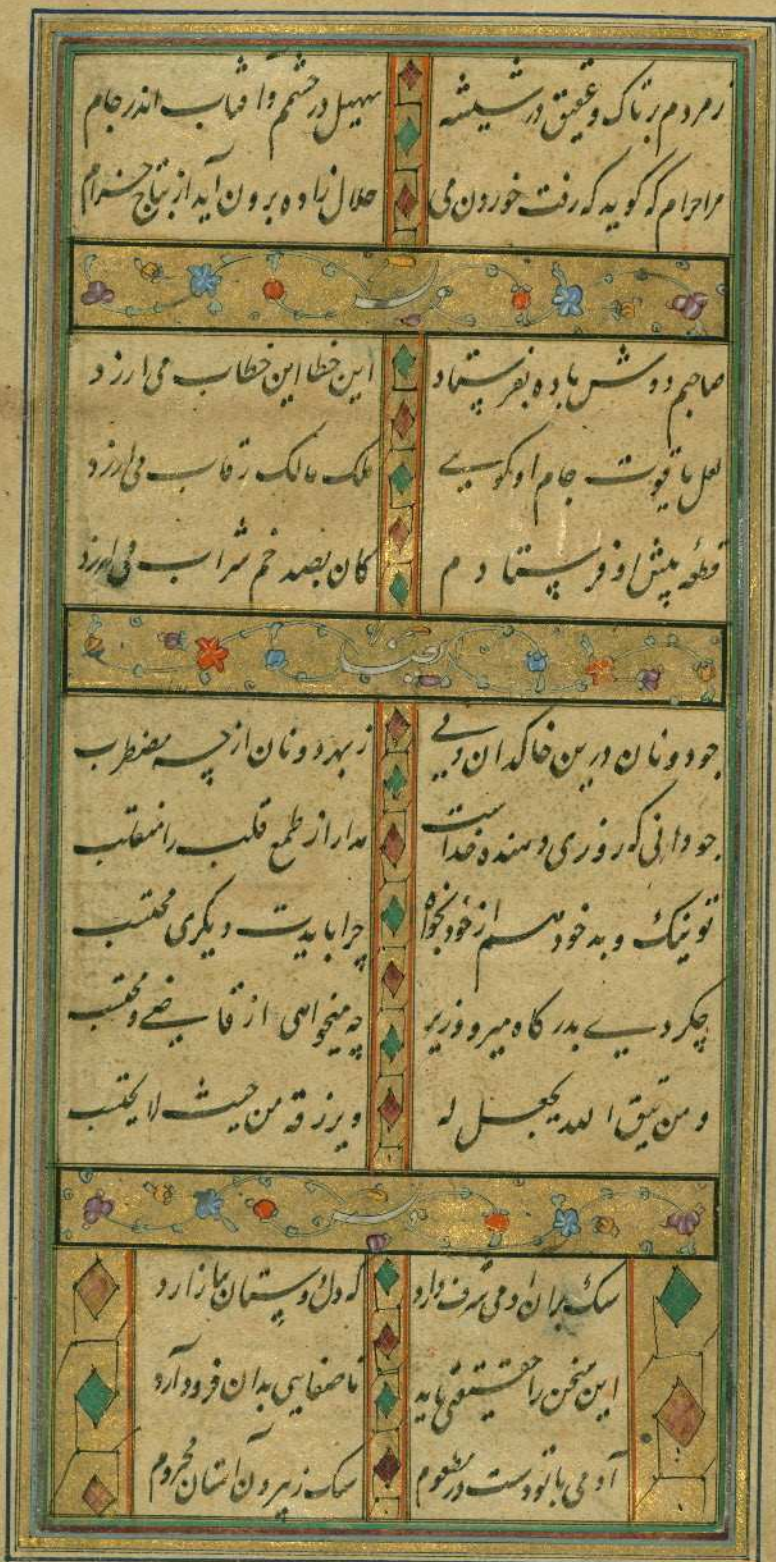 زمردم بر تاک و عقیق در شیشه سهیل در خم و آفتاب اندر جام
مرا حرام که گوید که رفت خوردن می حلال زاده برون آید از نتاج حرام
صاحبم دوش باده نفرستاد این خطا این خطاب می ارزد
لعل یاقوت جام او گویی ملک مالک رقاب می ارزد
قطعه پیش او فرستادم کان بصد خم شراب می ارزد
ایضا
چو دو نان درین خاکدان دنی ز بهر دو نان از چه مضطرب
چو دانی که روزی دهنده خداست مدار از طمع قلب را منقلب
تو نیک و بد خود هم از خود بخواه چرا بایدت دیگری محتسب
چکردی بدرگاه میر و وزیر چه میخواهی از قاضی و محتسب
و من یتق الله یجعل له و یرزقه من حیث لا یحتسب
وله
سک بران آدمی شرف دارد که دل دوستان بیازارد
این سخن را حقیقتی باید تا معانی بدل فرود آرد
آدمی با تو دست در مطعوم سک ز بیرون آستان محروم